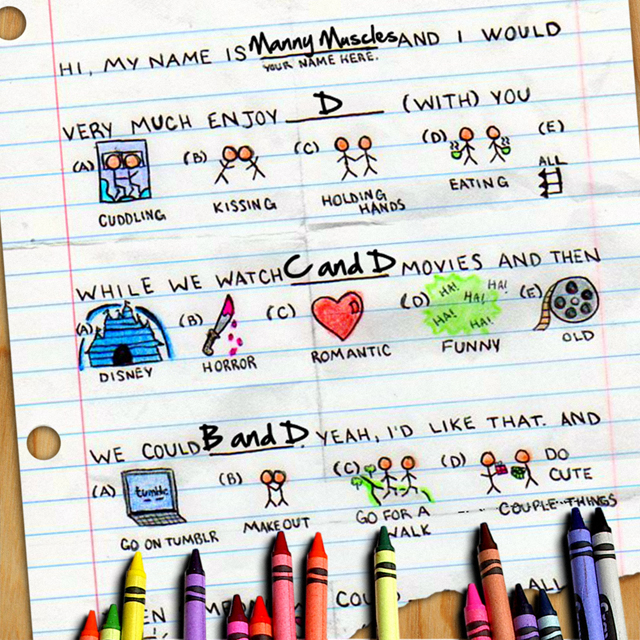 HI, MY NAME IS Manny Muscles AND I WOULD
YOUR NAME HERE.
VERY MUCH ENJOY D (WITH) YOU
(A) (B) (C) (D) (E)
ALL
CUDDLING KISSING HOLDING HANDS EATING
WHILE WE WATCH C and D MOVIES AND THEN
(A) (B) (C) (D) (E)
HA! HA! HA! HA! HA!
DISNEY HORROR ROMANTIC FUNNY OLD
WE COULD B and D YEAH, I'D LIKE THAT. AND
(A) (B) (C) (D) DO CUTE
tumblr
GO ON TUMBLR MAKE OUT GO FOR A WALK COUPLE THINGS
ALL